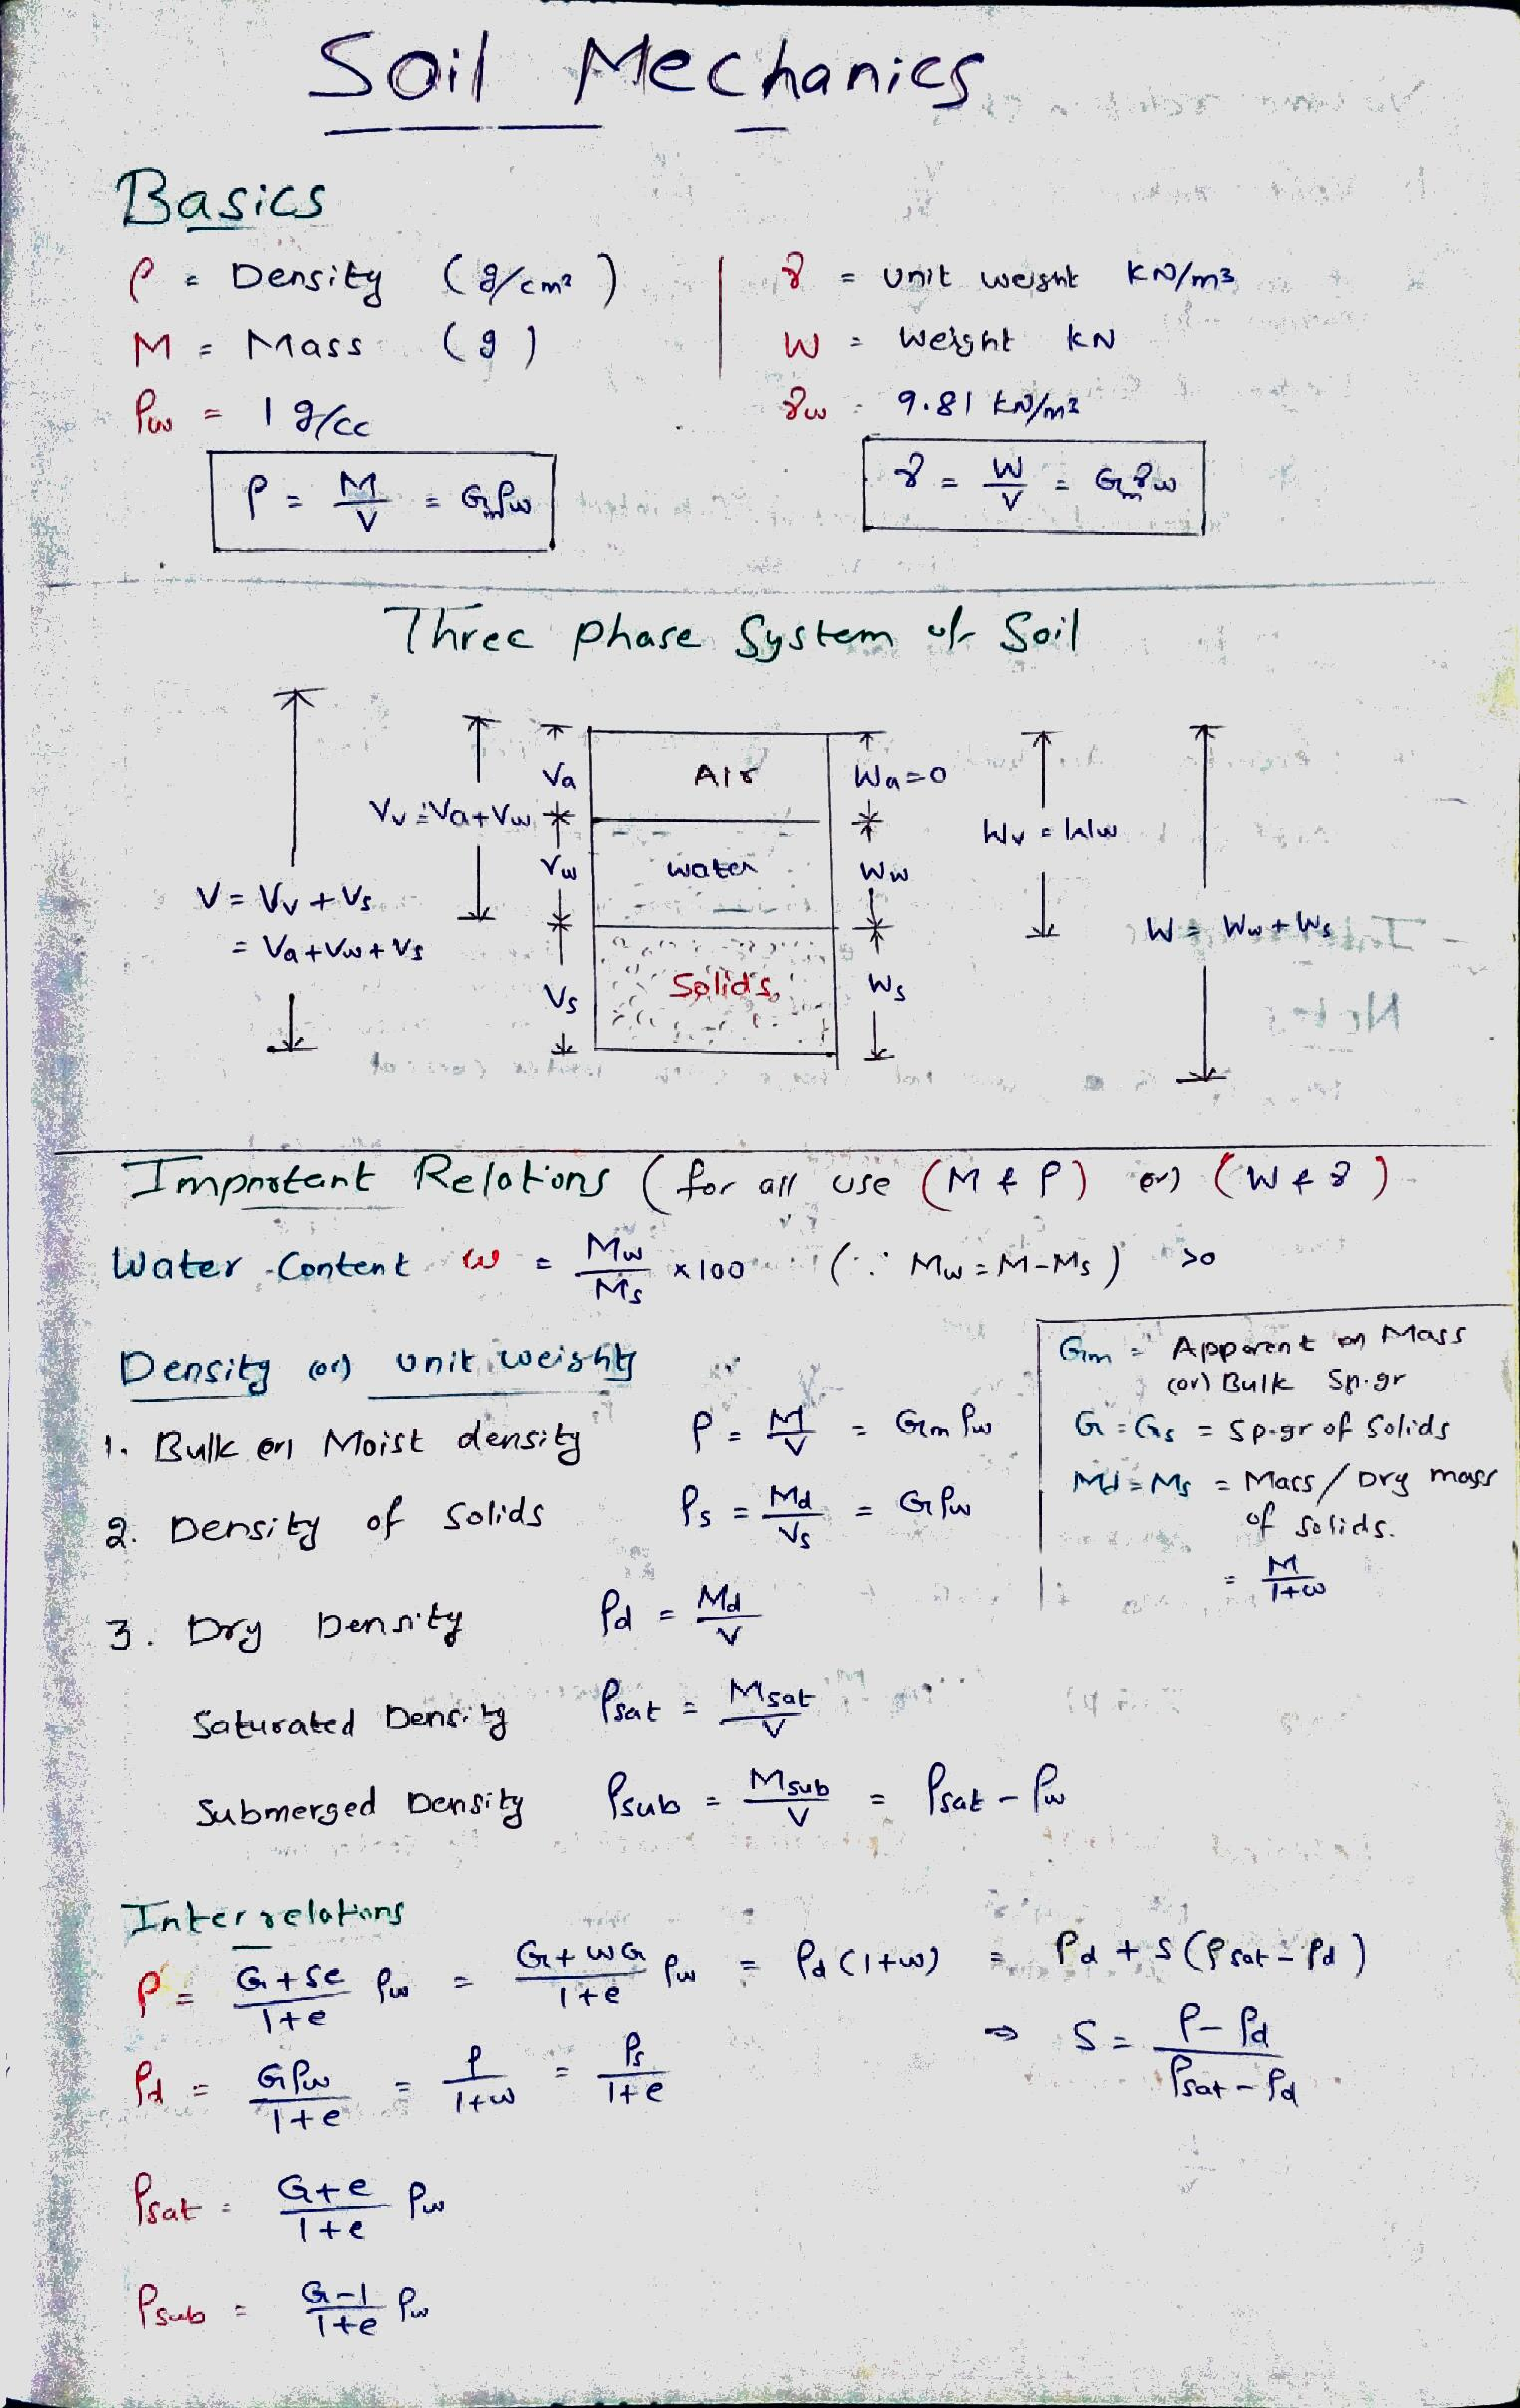 Soil Mechanics
Basics
ρ = Density (g/cm³) | γ = unit weight KN/m³
M = Mass (g) | W = Weight KN
ρw = 1 g/cc γw = 9.81 KN/m³
ρ = M/V = Gmρw γ = W/V = Gmγw
Three phase System of Soil
Va Air Wa=0
Vv = Va+Vw Wv = Ww
Vw water Ww
V = Vv + Vs W = Ww + Ws
= Va+Vw+Vs
Vs Solids Ws
Important Relations (for all use (M & ρ) (or) (W & γ)
Water Content ω = Mw/Ms ×100 (∵ Mw = M-Ms) >0
Density (or) unit weight
1. Bulk (or) Moist density ρ = M/V = Gm ρw
2. Density of Solids ρs = Md/Vs = G ρw
3. Dry Density ρd = Md/V
Saturated Density ρsat = Msat/V
Submerged Density ρsub = Msub/V = ρsat - ρw
Gm = Apparent or Mass
(or) Bulk Sp.gr
G = Gs = Sp.gr of Solids
Md = Ms = Mass / Dry mass
of solids.
= M/1+ω
Inter relations
ρ = G+Se/1+e ρw = G+wG/1+e ρw = ρd(1+w) = ρd + S(ρsat - ρd)
⇒ S = ρ-ρd/ρsat-ρd
ρd = Gρw/1+e = ρ/1+w = ρs/1+e
ρsat = G+e/1+e ρw
ρsub = G-1/1+e ρw